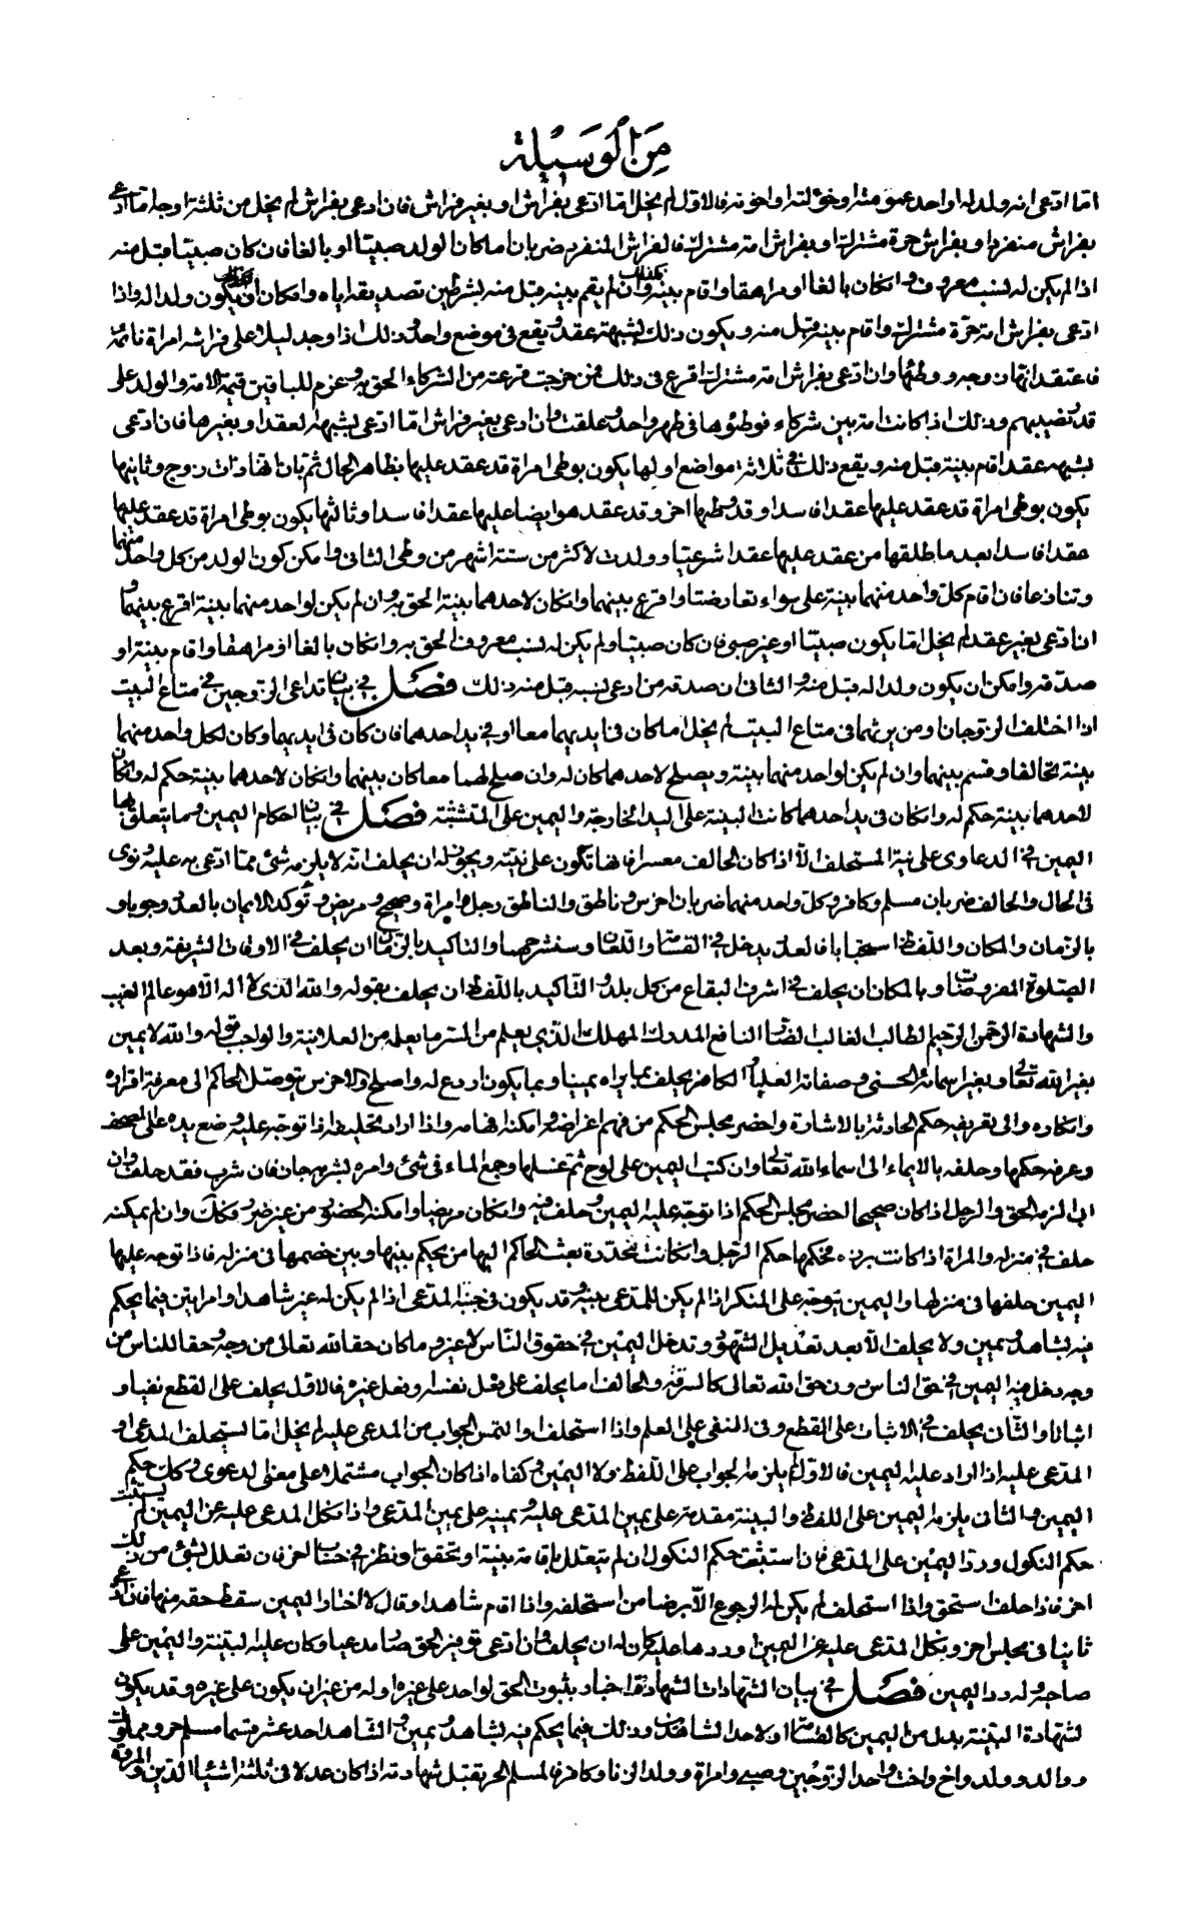 مِنَ الوَسيلة
اما ادعى انه ولد له او لاحد عمومته او خؤلته او اخوته فالاول لم يخل اما ادعى بفراش او بغير فراش فان ادعى بفراش لم يخل من ثلثة اوجه اما ادعى
بفراش منفرد او بفراش حرة مشترك او بفراش امة مشترك فالفراش المنفرد ضربان اما كان الولد صبيتا او بالغا فان كان صبيتا قبل منه
اذا لم يكن له نسب معروف وانكان بالغا او مراهقا واقام بينة وان لم يقم بينة قبل منه بشرطين تصديقه اياه وامكان ان يكون ولدا له واذا
ادعى بفراش امة حرة مشترك واقام بينة قبل منه ويكون ذلك لشبهة عقد ويقع في موضع واحد وذلك اذا وجد ليلا على فراشه امراة نائمة
فاعتقد انها زوجه ووطئها وان ادعى بفراش امة مشترك اقرع في ذلك فمن خرجت قرعته من الشركاء الحق به وغرم للباقين قيمة الامة والولد على
قدر نصيبهم وذلك اذا كانت امة بين شركاء فوطئوها في طهر واحد وعلقت وان ادعى بغير فراش اما ادعى بشبهة لعقد او بغيرها فان ادعى
بشبهة عقد اقام بينة قبل منه ويقع ذلك في ثلاثة مواضع اولها يكون بوطى امراة قد عقد عليها بظاهر الحال ثم بان انها ذات زوج وثانيها
يكون بوطى امراة قد عقد عليها عقدا فاسدا وقد وطئها اخر وقد عقد هو ايضا عليها عقدا فاسدا وثالثها يكون بوطى امراة قد عقد عليها
عقدا فاسدا بعد ما طلقها من عقد عليها عقدا شرعيا وولدت لاكثر من ستة اشهر من وطى الثاني وامكن كون الولد من كل واحد منهما
وتنازعا فان اقام كل واحد منهما بينة على سواء تعارضتا واقرع بينهما وانكان لاحدهما بينة الحق به وان لم يكن لواحد منهما بينة اقرع بينهما و
ان ادعى بغير عقد لم يخل اما يكون صبيتا او غير صبي فان كان صبيتا ولم يكن له نسب معروف الحق به وانكان بالغا او مراهقا واقام بينة او
صدقه وامكن ان يكون ولدا له قبل منه والثاني ان صدقه من ادعى نسبه قبل منه ذلك فصل في بيان تداعى الزوجين في متاع البيت
اذا اختلف الزوجان او من يرثهما في متاع البيت لم يخل اما كان في ايديهما معا او في يد احدهما فان كان في ايديهما وكان لكل واحد منهما
بينة تحالفا وقسم بينهما وان لم يكن لواحد منهما بينة ويصلح لاحدهما كان له وان صلح لهما معا كان بينهما وانكان لاحدهما بينة حكم له وانكان
لاحدهما بينة حكم له وانكان في يد احدهما كانت البينة على اليد الخارجة واليمين على المتشبثة فصل في بيان احكام اليمين وما يتعلق بها
اليمين في الدعاوى على نية المستحلف الا اذا كان الحالف معسرا فانها تكون على نيته ويجوز له ان يحلف انه لا يلزمه شئ مما ادعى به عليه ونوى
في الحال والحالف ضربان مسلم وكافر وكل واحد منهما ضربان اخرس وناطق والناطق رجل وامراة وصحيح ومريض وتوكد الايمان بالعدد وجوبا و
بالزمان والمكان واللفظ استحبابا فالعدد يدخل في القسامة واللعان وسنشرحهما والتاكيد بالزمان ان يحلف في الاوقات الشريفة وبعد
الصلوة المفروضات وبالمكان ان يحلف في اشرف البقاع من كل بلد والتاكيد باللفظ ان يحلف بقوله والله الذى لا اله الا هو عالم الغيب
والشهادة الرحمن الرحيم الطالب الغالب الضار النافع المدرك المهلك الذي يعلم من السر ما يعلمه من العلانية والواجب قوله والله لا يمين
بغير الله تعالى او بغير اسمائه الحسنى وصفاته العليا والكافر يحلف بما يراه يمينا وبما يكون اردع له واصلح والاخرس يتوصل الحاكم الى معرفة اقراره
وانكاره والى تعريفه حكم الحادثة بالاشارة واحضر مجلس الحكم من فهم اغراضه وامكنه افهامه واذا اراد تحليفه اذا توجه عليه وضع يده على المصحف
وعرفه حكمها وحلفه بالايماء الى اسماء الله تعالى وان كتب اليمين على لوح ثم غسلها وجمع الماء في شئ وامره بشربه جاز فان شرب فقد حلف وان
ابى الزمه الحق والرجل اذا كان صحيحا احضر مجلس الحكم اذا توجه عليه اليمين وحلف فيه وانكان مريضا وامكنه الحضور من غير ضرر فكذلك وان لم يمكنه
حلف في منزله والمراة اذا كانت برزه فحكمها حكم الرجل وانكانت مخدرة بعث الحاكم اليها من يحكم بينها وبين خصمها في منزله فاذا توجه عليها
اليمين حلفها في منزلها واليمين يتوجه على المنكر اذا لم يكن للمدعى بينة وقد يكون في جنبة المدعى اذا لم يكن له غير شاهد او امراتين فيما يحكم
فيه بشاهد ويمين ولا يحلف الا بعد تعديل الشهود وتدخل اليمين في حقوق الناس لا غير وما كان حقا لله تعالى من وجه وحقا للناس من
وجه دخل فيه اليمين في حق الناس دون حق الله تعالى كالسرقة والحالف اما يحلف على فعل نفسه او فعل غيره فالاول يحلف على القطع نفيا و
اثباتا والثاني يحلف في الاثبات على القطع وفي النفي على العلم واذا استحلف والتمس الجواب من المدعى عليه لم يخل اما استحلف المدعى او
المدعى عليه اذا اراد عليه اليمين فالاول لم يلزمه الجواب على اللفظ ولا اليمين وكفاه اذا كان الجواب مشتملا على معنى الدعوى وكذلك حكم
اليمين والثاني يلزمه اليمين على اللفظ والبينة مقدمة على يمين المدعى عليه ويمينه على يمين المدعى واذا نكل المدعى عليه عن اليمين لم يستثبت
حكم النكول ورد اليمين على المدعى فان استثبت حكم النكول ان لم يتعلل باقامة بينة او تحقق ونظر في حساب اخر فان تعلل بشئ من ذلك
اخر فاذا حلف استحق واذا استحلف لم يكن له الرجوع الا برضا من استحلفه واذا اقام شاهدا وقال لا اختار اليمين سقط حقه منها فان ادعى
ثانيا في مجلس اخر ونكل المدعى عليه عن اليمين او ردها عليه كان له ان يحلف وان ادعى توفير الحق صار مدعيا وكان عليه البينة واليمين على
صاحبه وله رد اليمين فصل في بيان الشهادات الشهادة اخبار بثبوت الحق لواحد على غيره او له من غير ان يكون على غيره وقد يكون
لشهادة البينة بدل من اليمين كالقسامة او لاحد الشاهدين وذلك فيما يحكم فيه بشاهد ويمين والشاهد احد عشر قسما مسلم حر ومملوك
ووالد وولد واخ واخت واحد الزوجين وصبي وامراة وولد الزنا وكافر فالمسلم الحر يقبل شهادته اذا كان عدلا في ثلثة اشياء الدين والمروة